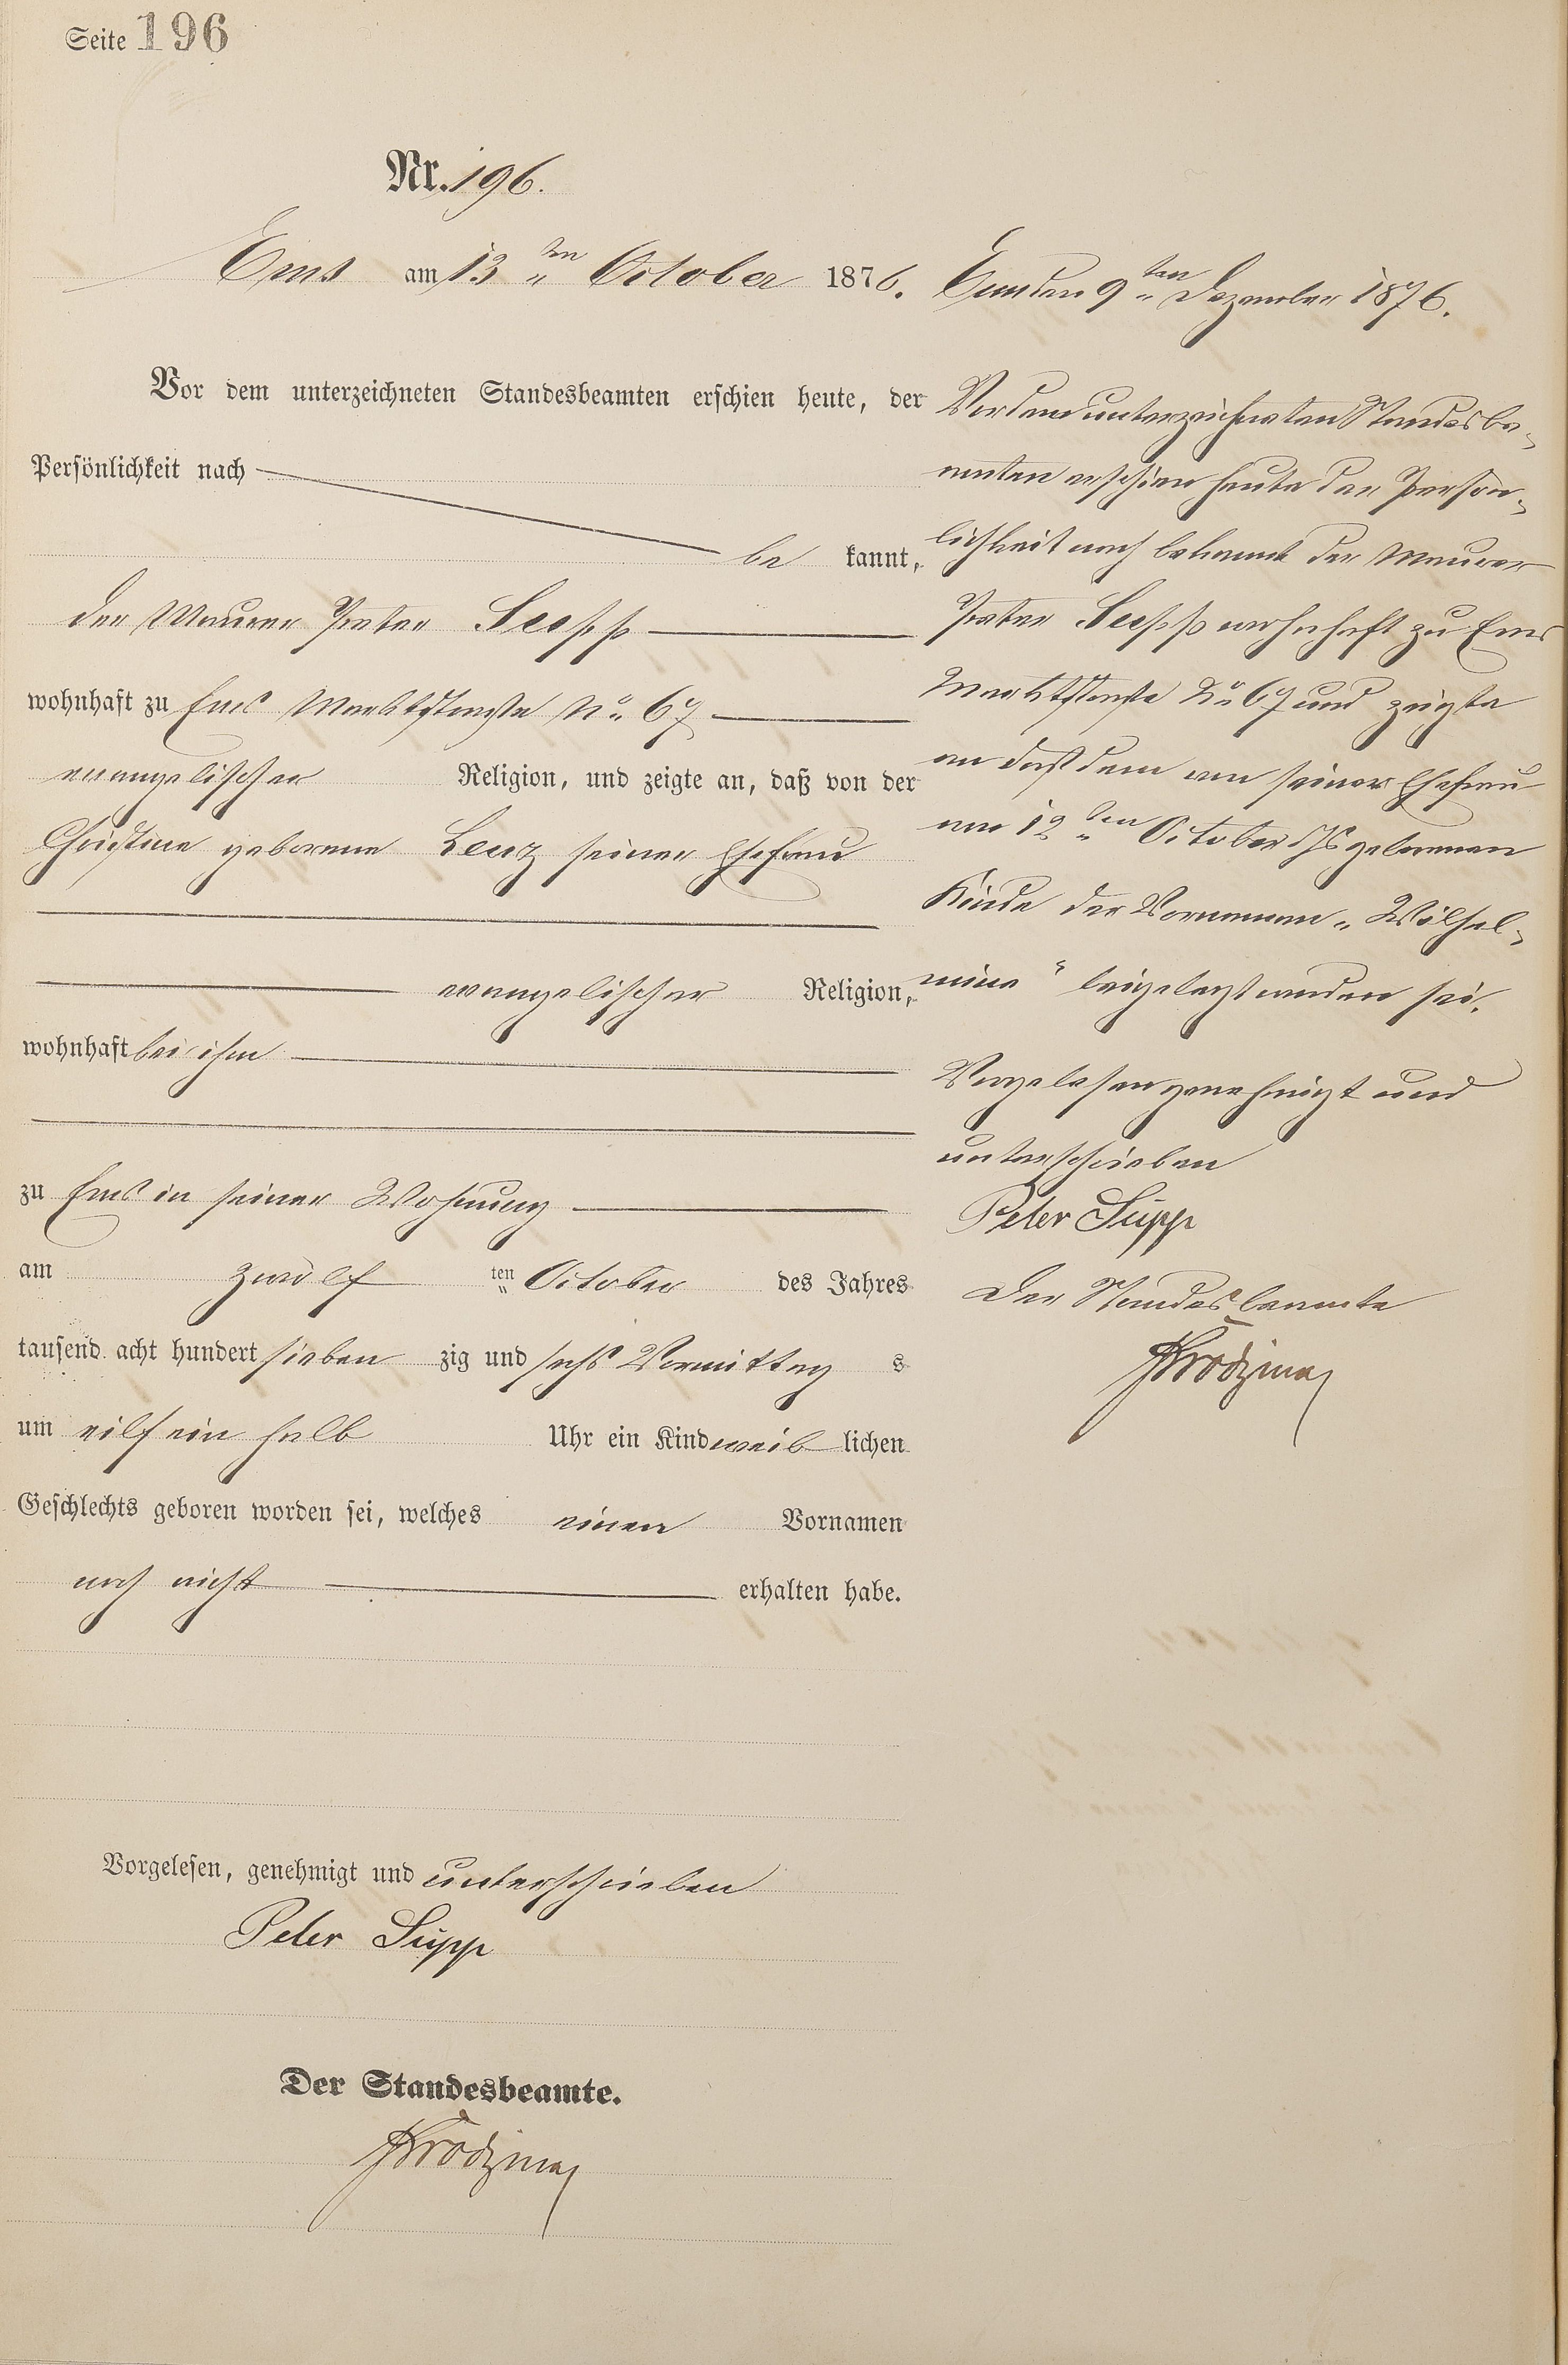 Seite 196
Nr. 196.
Ems am 13ten October 1876.
Vor dem unterzeichneten Standesbeamten erschien heute, der
Persönlichkeit nach
be kannt,
der Maurer Peter Supp
wohnhaft zu Ems Marktstraße No 67
evangelischer Religion, und zeigte an, daß von der
Christine geborene Lenz seiner Ehefrau
evangelischer Religion,
wohnhaft bei ihm
zu Ems in seiner Wohnung
am zwölf ten October des Jahres
tausend acht hundert sieben zig und sechs Vormittag s
um eilf ein halb Uhr ein Kind weib lichen
Geschlechts geboren worden sei, welches einen Vornamen
noch nicht erhalten habe.
Vorgelesen, genehmigt und unterschrieben
Peter Supp
Der Standesbeamte.
Ems den 9ten Dezember 1876.
Vor dem unterzeichneten Standesbe-
amten erschien heute der Persön-
lichkeit nach bekannt der Maurer
Peter Supp wohnhaft zu Ems
Marktstraße No 67 und zeigte
an daß dem von seiner Ehefrau
am 12ten October d Js geborenen
Kinde der Vornamen „Wilhel-
mine“ beigelegt worden sei.
Vorgelesen genehmigt und
unterschrieben
Peter Supp
Der Standesbeamte